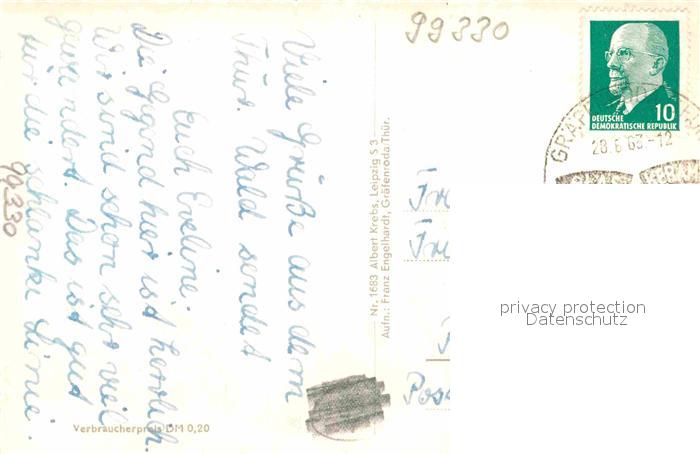 Viele Grüße aus dem
Thür. Wald sendet
Euch Eveline.
Die Gegend hier ist herrlich.
Wir sind schon sehr viel
gewandert. Das ist gut
für die schlanke Linie.
99330
99330
Verbraucherpreis DM 0,20
Nr. 1683 Albert Krebs, Leipzig S 3
Aufn.: Franz Engelhardt, Gräfenroda/Thür.
10
DEUTSCHE
DEMOKRATISCHE REPUBLIK
28.6.63-12
privacy protection
Datenschutz